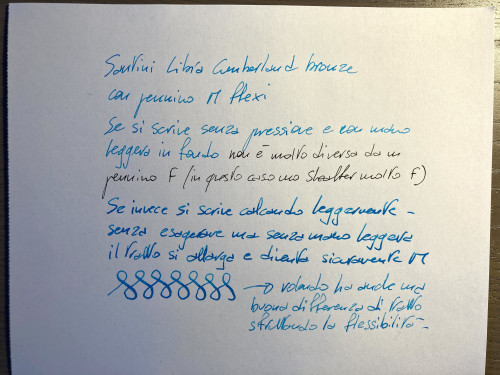 Santini Libra Cumberland bronze
con pennino M flexi
Se si scrive senza pressione e con mano
leggera in fondo non è molto diversa da un
pennino F (in questo caso uno staedtler molto F)
Se invece si scrive calcando leggermente -
senza esagerare ma senza mano leggera
il tratto si allarga e diventa sicuramente M
→ volendo ha anche una
buona differenza di tratto
sfruttando la flessibilità -